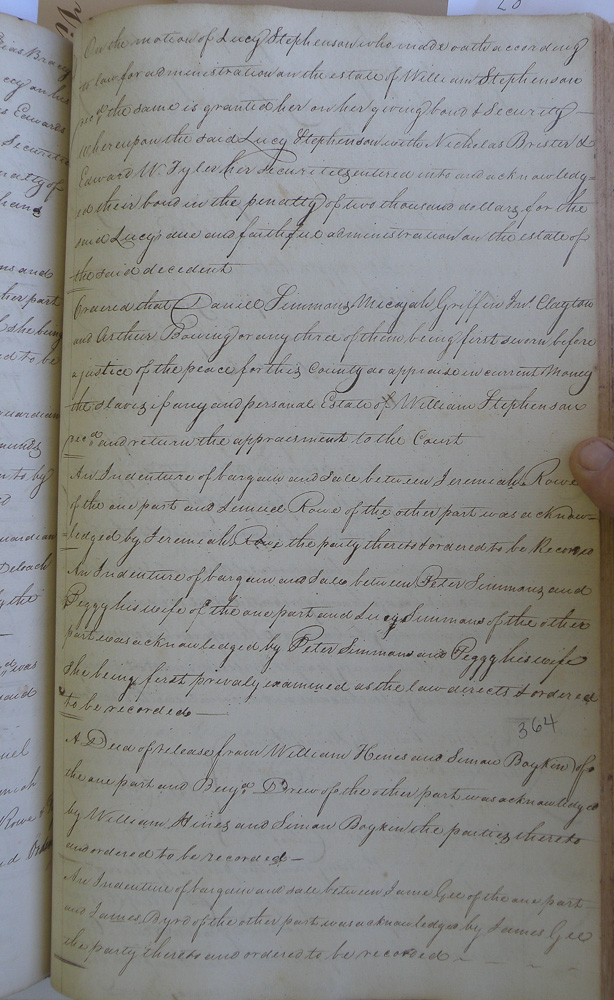 On the motion of Lucy Stephenson who made oath according
to law for administration on the estate of William Stephenson
dec.d the same is granted her on her giving bond & Security
whereupon the said Lucy Stephenson with Nicholas Brister &
Edward W. Tyler her Securities entered into and acknowledg-
ed their bond in the penalty of two thousand dollars for the
said Lucy's due and faithful administration on the estate of
the said decedent
Ordered that Daniel Simmons, Micajah Griffin Jno. Clayton
and Arthur Bowing or any three of them being first sworn before
a justice of the peace for this County do appraise in current Money
the slaves if any and personal Estate of William Stephenson
dec.d and return the appraisment to the Court
An Indenture of bargain and Sale between Jeremiah Rowe
of the one part and Lemuel Rowe of the other part was acknow-
ledged by Jeremiah Rowe the party thereto & ordered to be Recorded
An Indenture of bargain and Sale between Peter Simmons and
Peggy his wife of the one part and Lucy Simmons of the other
part was acknowledged by Peter Simmons and Peggy his wife
She being first privaly examined as the law directs & ordered
to be recorded
364
A Deed of release from William Hines and Simon Boykin of
the one part and Benj.a Drew of the other part was acknowledged
by William Hines and Simon Boykin the parties thereto
and ordered to be recorded
An Indenture of bargain and sale between James Gee of the one part
and James Byrd of the other part was acknowledged by James Gee
the party thereto and ordered to be recorded